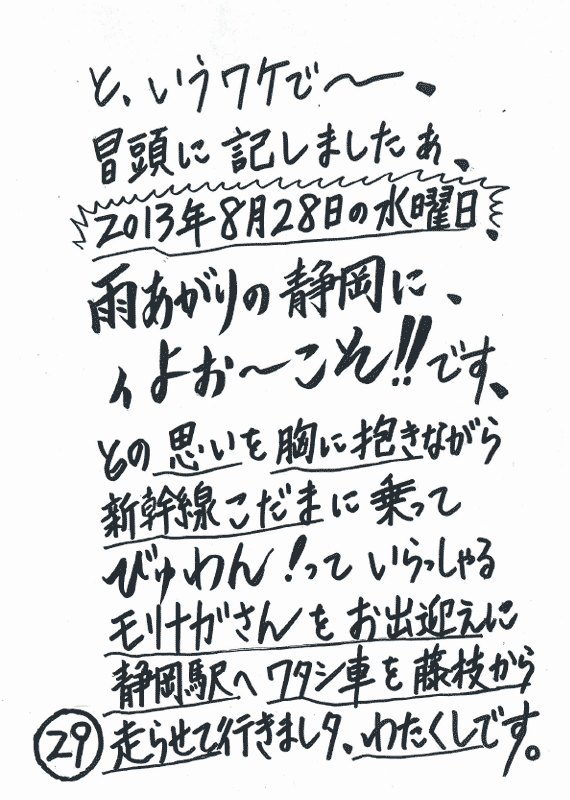 と、いうワケで〜、
冒頭に記しましたぁ、
2013年8月28日の水曜日、
雨あがりの静岡に、
イよお〜こそ!!です、
との思いを胸に抱きながら
新幹線こだまに乗って
びゅわん!っていらっしゃる
モリナガさんをお出迎えに
静岡駅へワタシ車を藤枝から
29 走らせて行きましタ、わたくしです。